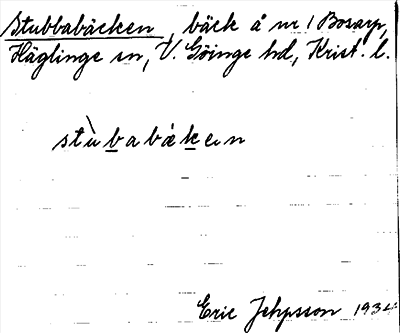 Stubbabäcken, bäck å nr 1 Bosarp,
Häglinge sn, V. Göinge hd, Krist. l.
stùbabäken
Eric Jehpsson 1934